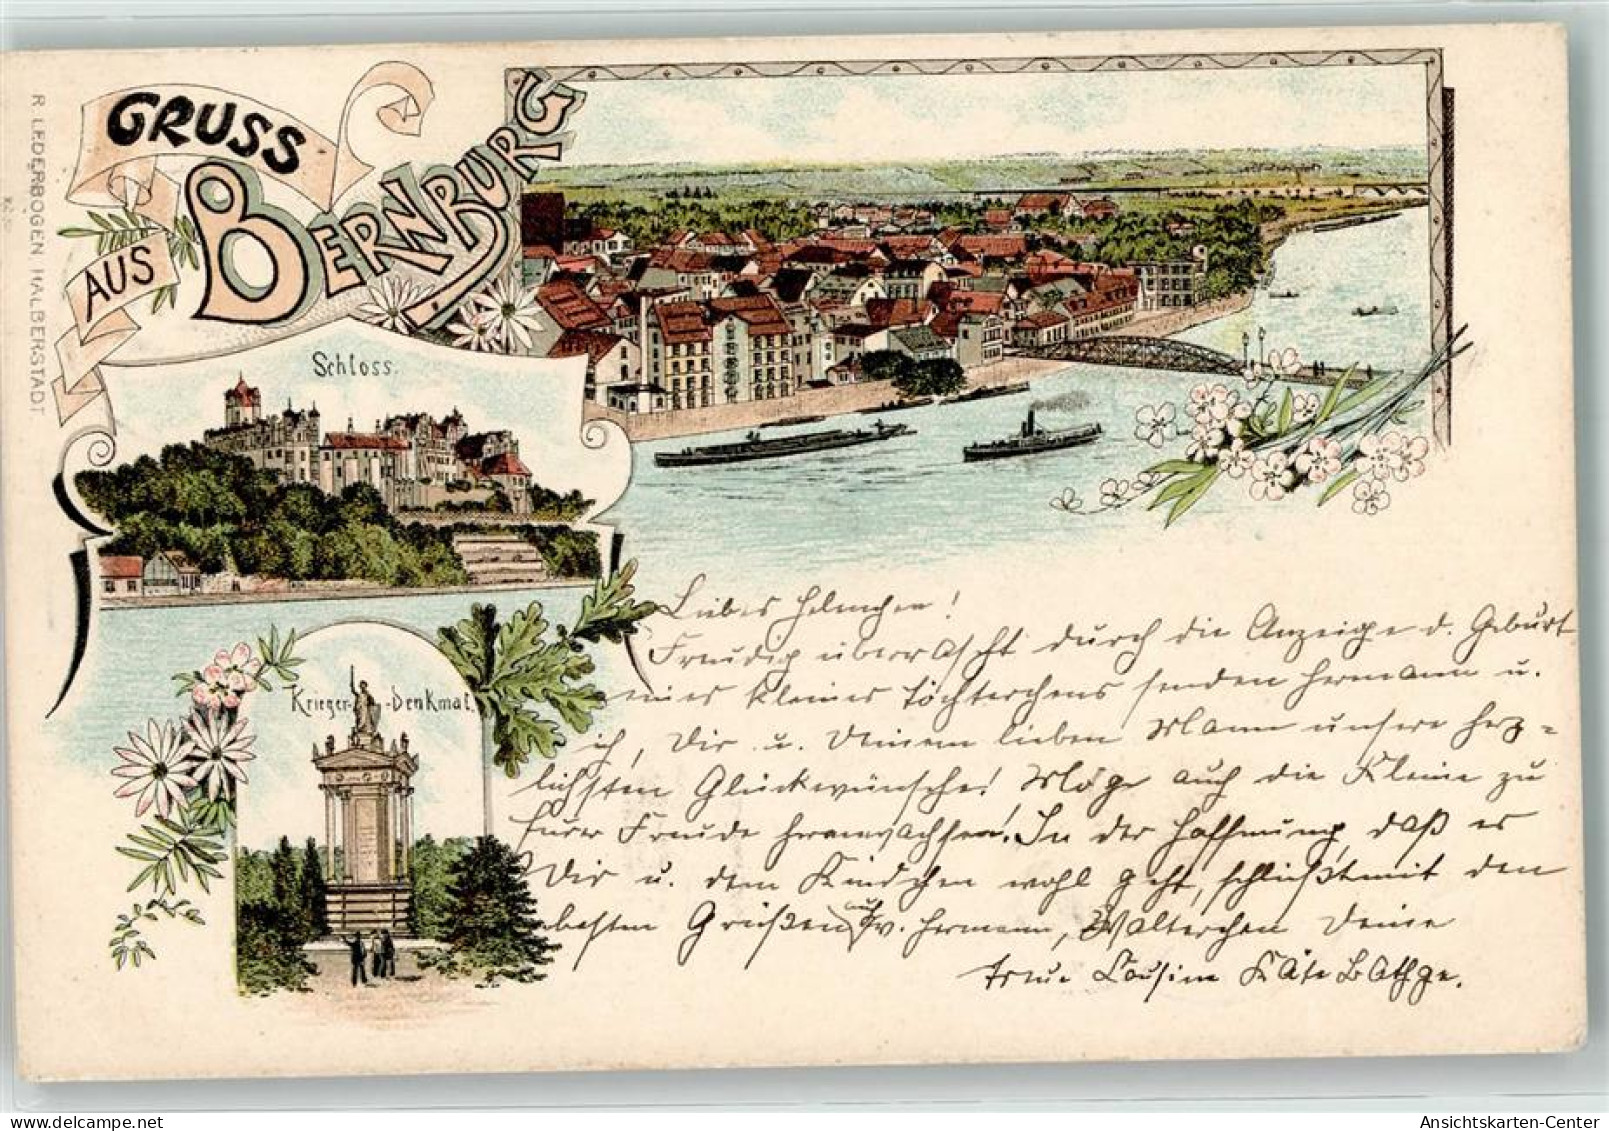 GRUSS
AUS
BERNBURG
R. LEDERBOGEN HALBERSTADT
Schloss.
Krieger-Denkmal.
Liebes Helenchen!
Freudig überrascht durch die Anzeige d. Geburt
eines kleinen Töchterchens senden Hermann u.
ich, Dir u. Deinem lieben Mann unsere herz=
lichsten Glückwünsche! Möge auch die Kleine zu
Eurer Freude heranwachsen! In der Hoffnung, daß es
Dir u. dem Kindchen wohl geht, schließt mit den
besten Grüßen auch v. Hermann, Walterchen Deine
treue Cousine Käte Bathge.
Ansichtskarten-Center